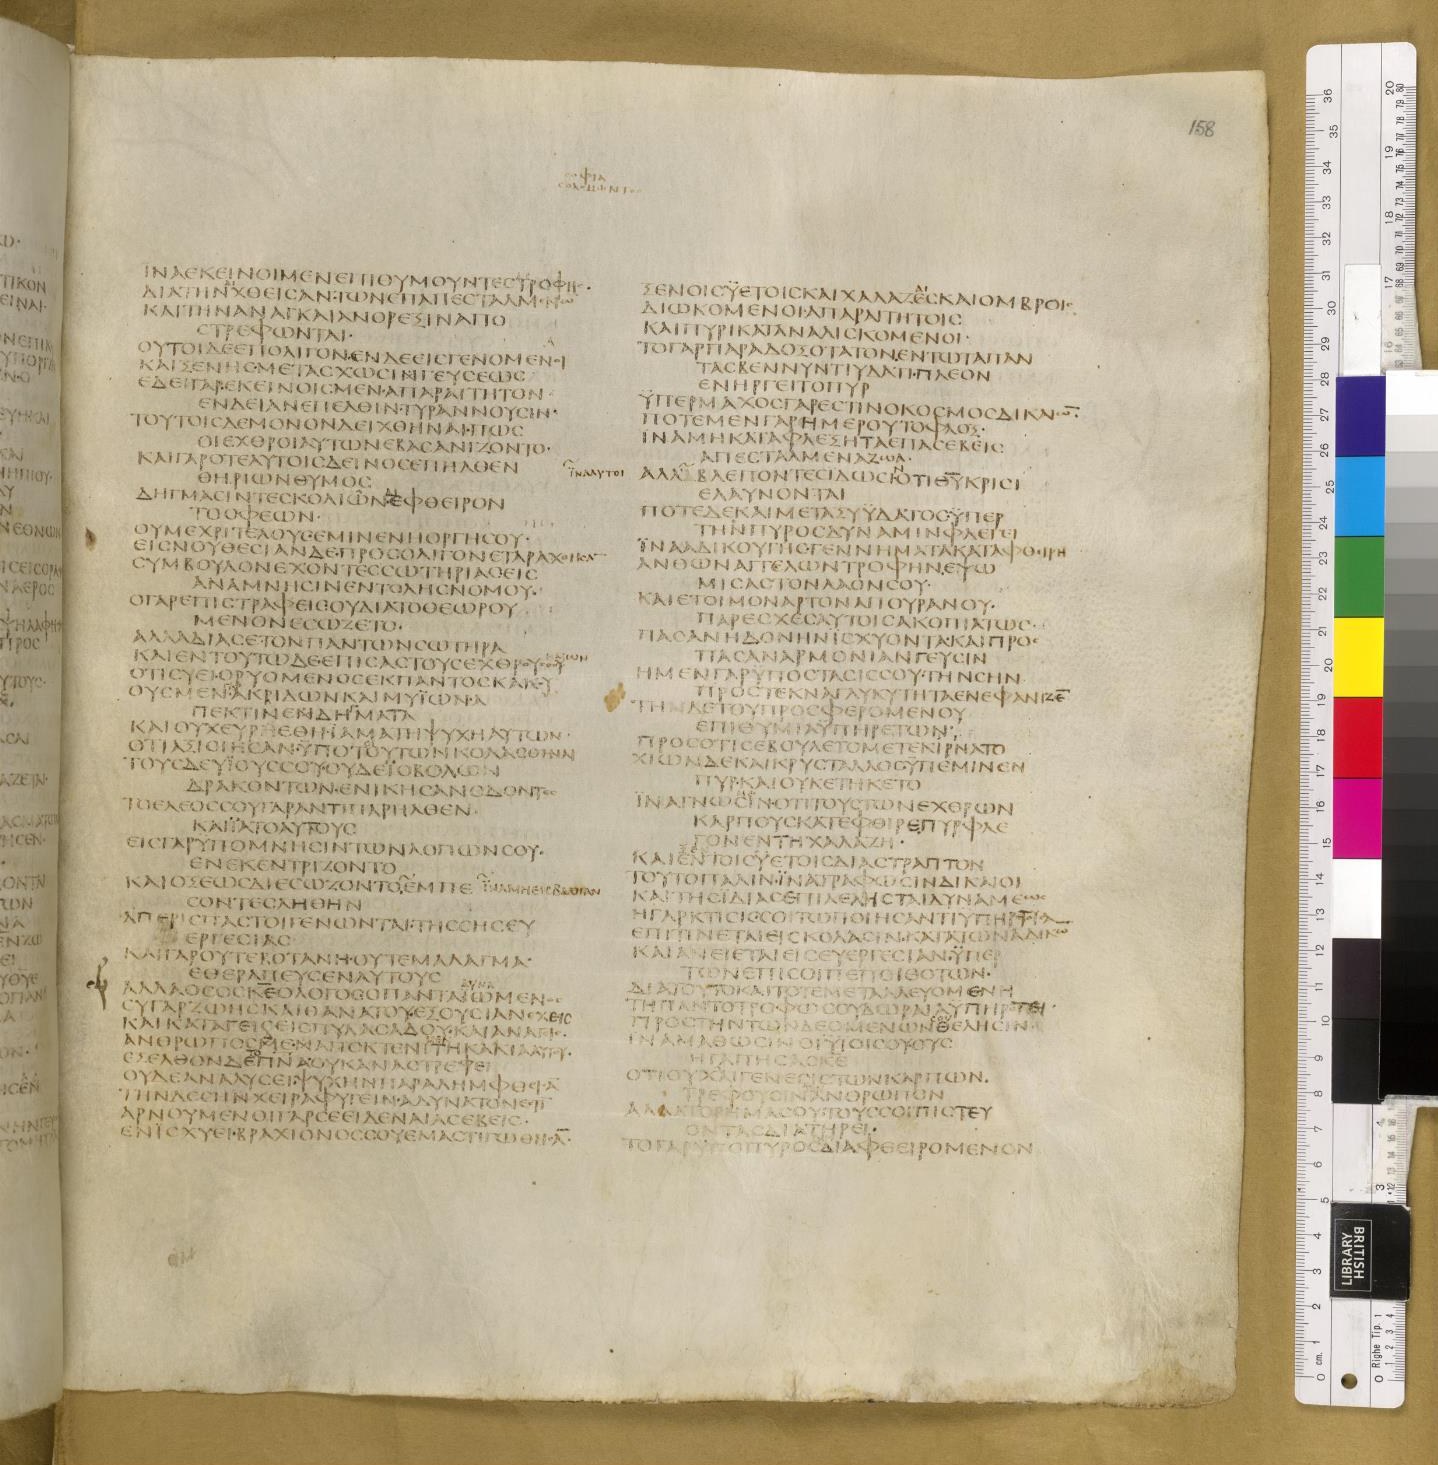 158
ϹΟΦΙΑ
ϹΟΛΟΜΩΝΤΟϹ
ΙΝΑΕΚΕΙΝΟΙΜΕΝΕΠΙΘΥΜΟΥΝΤΕϹΤΡΟΦΗ
ΚΑΙΤΗΝΑΝΑΓΚΑΙΑΝΟΡΕΞΙΝΑΠΟ
ϹΤΡΕΦΩΝΤΑΙ·
ΟΥΤΟΙΔΕΕΠΟΛΙΓΟΝΕΝΔΕΕΙϹΓΕΝΟΜΕΝΟΙ
ΚΑΙΞΕΝΗϹΜΕΤΑϹΧΩϹΙΝΓΕΥϹΕΩϹ
ΕΔΕΙΓΑΡΕΚΕΙΝΟΙϹΜΕΝΑΠΑΡΑΙΤΗΤΟΝ
ΕΝΔΕΙΑΝΕΠΕΛΘΙΝΤΥΡΑΝΝΟΥϹΙΝ·
ΤΟΥΤΟΙϹΔΕΜΟΝΟΝΔΕΙΧΘΗΝΑΙΠΩϹ
ΟΙΕΧΘΡΟΙΑΥΤΩΝΕΒΑϹΑΝΙΖΟΝΤΟ·
ΚΑΙΓΑΡΟΤΕΑΥΤΟΙϹΔΕΙΝΟϹΕΠΗΛΘΕΝ
ΘΗΡΙΩΝΘΥΜΟϹ
ΔΗΓΜΑϹΙΝΤΕϹΚΟΛΙΩΝΔΕΦΘΕΙΡΟΝ
ΤΟΟΦΕΩΝ·
ΟΥΜΕΧΡΙΤΕΛΟΥϹΕΜΙΝΕΝΗΟΡΓΗϹΟΥ·
ΕΙϹΝΟΥΘΕϹΙΑΝΔΕΠΡΟϹΟΛΙΓΟΝΕΤΑΡΑΧΘΗϹΑ
ϹΥΜΒΟΥΛΟΝΕΧΟΝΤΕϹϹΩΤΗΡΙΑϹΕΙϹ
ΑΝΑΜΝΗϹΙΝΕΝΤΟΛΗϹΝΟΜΟΥ·
ΟΓΑΡΕΠΙϹΤΡΑΦΕΙϹΟΥΔΙΑΤΟΘΕΩΡΟΥ
ΜΕΝΟΝΕϹΩΖΕΤΟ·
ΑΛΛΑΔΙΑϹΕΤΟΝΠΑΝΤΩΝϹΩΤΗΡΑ
ΚΑΙΕΝΤΟΥΤΩΔΕΕΠΙϹΑϹΤΟΥϹΕΧΘΡΟΥϹ
ΟΤΙϹΥΕΙΟΡΥΟΜΕΝΟϹΕΚΠΑΝΤΟϹΚΑΚΟΥ
ΟΥϹΜΕΝΑΚΡΙΔΩΝΚΑΙΜΥΪΩΝΑ
ΠΕΚΤΙΝΕΝΔΗΓΜΑΤΑ
ΚΑΙΟΥΧΕΥΡΕΘΗΪΑΜΑΤΗΨΥΧΗΑΥΤΩΝ·
ΟΤΙΑΞΙΟΙΗϹΑΝΫΠΟΤΟΥΤΩΝΚΟΛΑϹΘΗΝΑΙ
ΤΟΥϹΔΕΥΪΟΥϹϹΟΥΟΥΔΕΪΟΒΟΛΩΝ
ΔΡΑΚΟΝΤΩΝΕΝΙΚΗϹΑΝΟΔΟΝΤΕϹ
ΤΟΕΛΕΟϹϹΟΥΓΑΡΑΝΤΙΠΑΡΗΛΘΕΝ·
ΚΑΙΪΑΤΟΑΥΤΟΥϹ
ΕΙϹΓΑΡΫΠΟΜΝΗϹΙΝΤΩΝΛΟΓΙΩΝϹΟΥ·
ΕΝΕΚΕΝΤΡΙΖΟΝΤΟ
ΚΑΙΟΞΕΩϹΔΙΕϹΩΖΟΝΤΟΕΜΠΕ
ϹΟΝΤΕϹΛΗΘΗΝ
ΑΠΕΡΙϹΠΑϹΤΟΙΓΕΝΩΝΤΑΙΤΗϹϹΗϹΕΥ
ΕΡΓΕϹΙΑϹ
ΚΑΙΓΑΡΟΥΤΕΒΟΤΑΝΗΟΥΤΕΜΑΛΑΓΜΑ·
ΕΘΕΡΑΠΕΥϹΕΝΑΥΤΟΥϹ
ΑΛΛΑΟϹΟϹΚΕΟΛΟΓΟϹΟΠΑΝΤΑΪΩΜΕΝΟϹ
ϹΥΓΑΡΖΩΗϹΚΑΙΘΑΝΑΤΟΥΕΞΟΥϹΙΑΝΕΧΕΙϹ
ΚΑΙΚΑΤΑΓΕΙϹΕΙϹΠΥΛΑϹΑΔΟΥΚΑΙΑΝΑΓΕΙϹ
ΑΝΘΡΩΠΟϹΜΕΝΑΠΟΚΤΕΝΙΤΗΚΑΚΙΑΑΥΤΟΥ·
ΕΞΕΛΘΟΝΔΕΠΝΑΟΥΚΑΝΑϹΤΡΕΦΕΙ
ΟΥΔΕΑΝΑΛΥϹΕΙΨΥΧΗΝΠΑΡΑΛΗΜΦΘΙϹΑ
ΤΗΝΔΕϹΗΝΧΕΙΡΑΦΥΓΕΙΝΑΔΥΝΑΤΟΝΕϹΤΙ
ΑΡΝΟΥΜΕΝΟΙΓΑΡϹΕΕΙΔΕΝΑΙΑϹΕΒΕΙϹ·
ΕΝΪϹΧΥΕΙΒΡΑΧΙΟΝΟϹϹΟΥΕΜΑϹΤΙΓΩΘΗϹΑ
ΪΝΑΑΥΤΟΙ
ΞΕΝΟΙϹΫΕΤΟΙϹΚΑΙΧΑΛΑΖΕϹΚΑΙΟΜΒΡΟΙϹ
ΔΙΩΚΟΜΕΝΟΙΑΠΑΡΑΙΤΗΤΟΙϹ
ΚΑΙΠΥΡΙΚΑΤΑΝΑΛΙϹΚΟΜΕΝΟΙ·
ΤΟΓΑΡΠΑΡΑΔΟΞΟΤΑΤΟΝΕΝΤΩΤΑΠΑΝ
ΤΑϹΒΕΝΝΥΝΤΙΥΔΑΤΙΠΛΕΟΝ
ΕΝΗΡΓΕΙΤΟΠΥΡ
ΫΠΕΡΜΑΧΟϹΓΑΡΕϹΤΙΝΟΚΟϹΜΟϹΔΙΚΑΙΩ
ΠΟΤΕΜΕΝΓΑΡΗΜΕΡΟΥΤΟΦΛΟΞ·
ΪΝΑΜΗΚΑΤΑΦΛΕΞΗΤΑΕΠΑϹΕΒΕΙϹ
ΑΠΕϹΤΑΛΜΕΝΑΖΩΑ·
ΑΛΛΑΒΛΕΠΟΝΤΕϹΙΔΩϹΙΟΤΙΘΥΚΡΙϹΙ
ΕΛΑΥΝΟΝΤΑΙ
ΠΟΤΕΔΕΚΑΙΜΕΤΑΞΥΫΔΑΤΟϹΫΠΕΡ
ΤΗΝΠΥΡΟϹΔΥΝΑΜΙΝΦΛΕΓΕΙ
ΪΝΑΑΔΙΚΟΥΓΗϹΓΕΝΝΗΜΑΤΑΚΑΤΑΦΘΙΡΗ
ΑΝΘΩΝΑΓΓΕΛΩΝΤΡΟΦΗΝΕΨΩ
ΜΙϹΑϹΤΟΝΛΑΟΝϹΟΥ·
ΚΑΙΕΤΟΙΜΟΝΑΡΤΟΝΑΠΟΥΡΑΝΟΥ·
ΠΑΡΕϹΧΕϹΑΥΤΟΙϹΑΚΟΠΙΑΤΩϹ·
ΠΑϹΑΝΗΔΟΝΗΝΙϹΧΥΟΝΤΑΚΑΙΠΡΟϹ
ΠΑϹΑΝΑΡΜΟΝΙΑΝΓΕΥϹΙΝ
ΗΜΕΝΓΑΡΫΠΟϹΤΑϹΙϹϹΟΥΤΗΝϹΗΝ
ΠΡΟϹΤΕΚΝΑΓΛΥΚΥΤΗΤΑΕΝΕΦΑΝΙΖΕ
ΤΗΔΕΤΟΥΠΡΟϹΦΕΡΟΜΕΝΟΥ
ΕΠΙΘΥΜΙΑΫΠΗΡΕΤΩΝ·
ΠΡΟϹΟΤΙϹΕΒΟΥΛΕΤΟΜΕΤΕΚΙΡΝΑΤΟ
ΧΙΩΝΔΕΚΑΙΚΡΥϹΤΑΛΛΟϹΫΠΕΜΙΝΕΝ
ΠΥΡΚΑΙΟΥΚΕΤΗΚΕΤΟ
ΪΝΑΓΝΩϹΙΝΟΤΙΤΟΥϹΤΩΝΕΧΘΡΩΝ
ΚΑΡΠΟΥϹΚΑΤΕΦΘΙΡΕΠΥΡΦΛΕ
ΓΟΝΕΝΤΗΧΑΛΑΖΗ·
ΚΑΙΕΝΤΟΙϹΫΕΤΟΙϹΔΙΑϹΤΡΑΠΤΟΝ
ΤΟΥΤΟΠΑΛΙΝΪΝΑΤΡΑΦΩϹΙΝΔΙΚΑΙΟΙ
ΚΑΙΤΗϹΪΔΙΑϹΕΠΙΛΕΛΗϹΤΑΙΔΥΝΑΜΕΩϹ
ΗΓΑΡΚΤΙϹΙϹϹΟΙΤΩΠΟΙΗϹΑΝΤΙΥΠΗΡΕΤΟΥϹΑ
ΕΠΙΤΙΝΕΤΑΙΕΙϹΚΟΛΑϹΙΝΚΑΤΑΤΩΝΑΔΙΚΩ
ΚΑΙΑΝΕΙΕΤΑΙΕΙϹΕΥΕΡΓΕϹΙΑΝΫΠΕΡ
ΤΩΝΕΠΙϹΟΙΠΕΠΟΙΘΟΤΩΝ·
ΔΙΑΤΟΥΤΟΚΑΙΤΟΤΕΜΕΤΑΛΛΕΥΟΜΕΝΗ
ΤΗΠΑΝΤΟΤΡΟΦΩϹΟΥΔΩΡΑΙΑΥΠΗΡΕΤΕΙ·
ΠΡΟϹΤΗΝΤΩΝΔΕΟΜΕΝΩΝΘΕΛΗϹΙΝ·
ΙΝΑΜΑΘΩϹΙΝΟΙΥΪΟΙϹΟΥΟΥϹ
ΗΓΑΠΗϹΑϹΚΕ
ΟΤΙΟΥΧΑΙΓΕΝΕϹΙϹΤΩΝΚΑΡΠΩΝ·
ΤΡΕΦΟΥϹΙΝΑΝΘΡΩΠΟΝ
ΑΛΛΑΤΟΡΗΜΑϹΟΥΤΟΥϹϹΟΙΠΙϹΤΕΥ
ΟΝΤΑϹΔΙΑΤΗΡΕΙ·
ΤΟΓΑΡΫΠΟΠΥΡΟϹΔΙΑΦΘΕΙΡΟΜΕΝΟΝ
BRITISH
LIBRARY